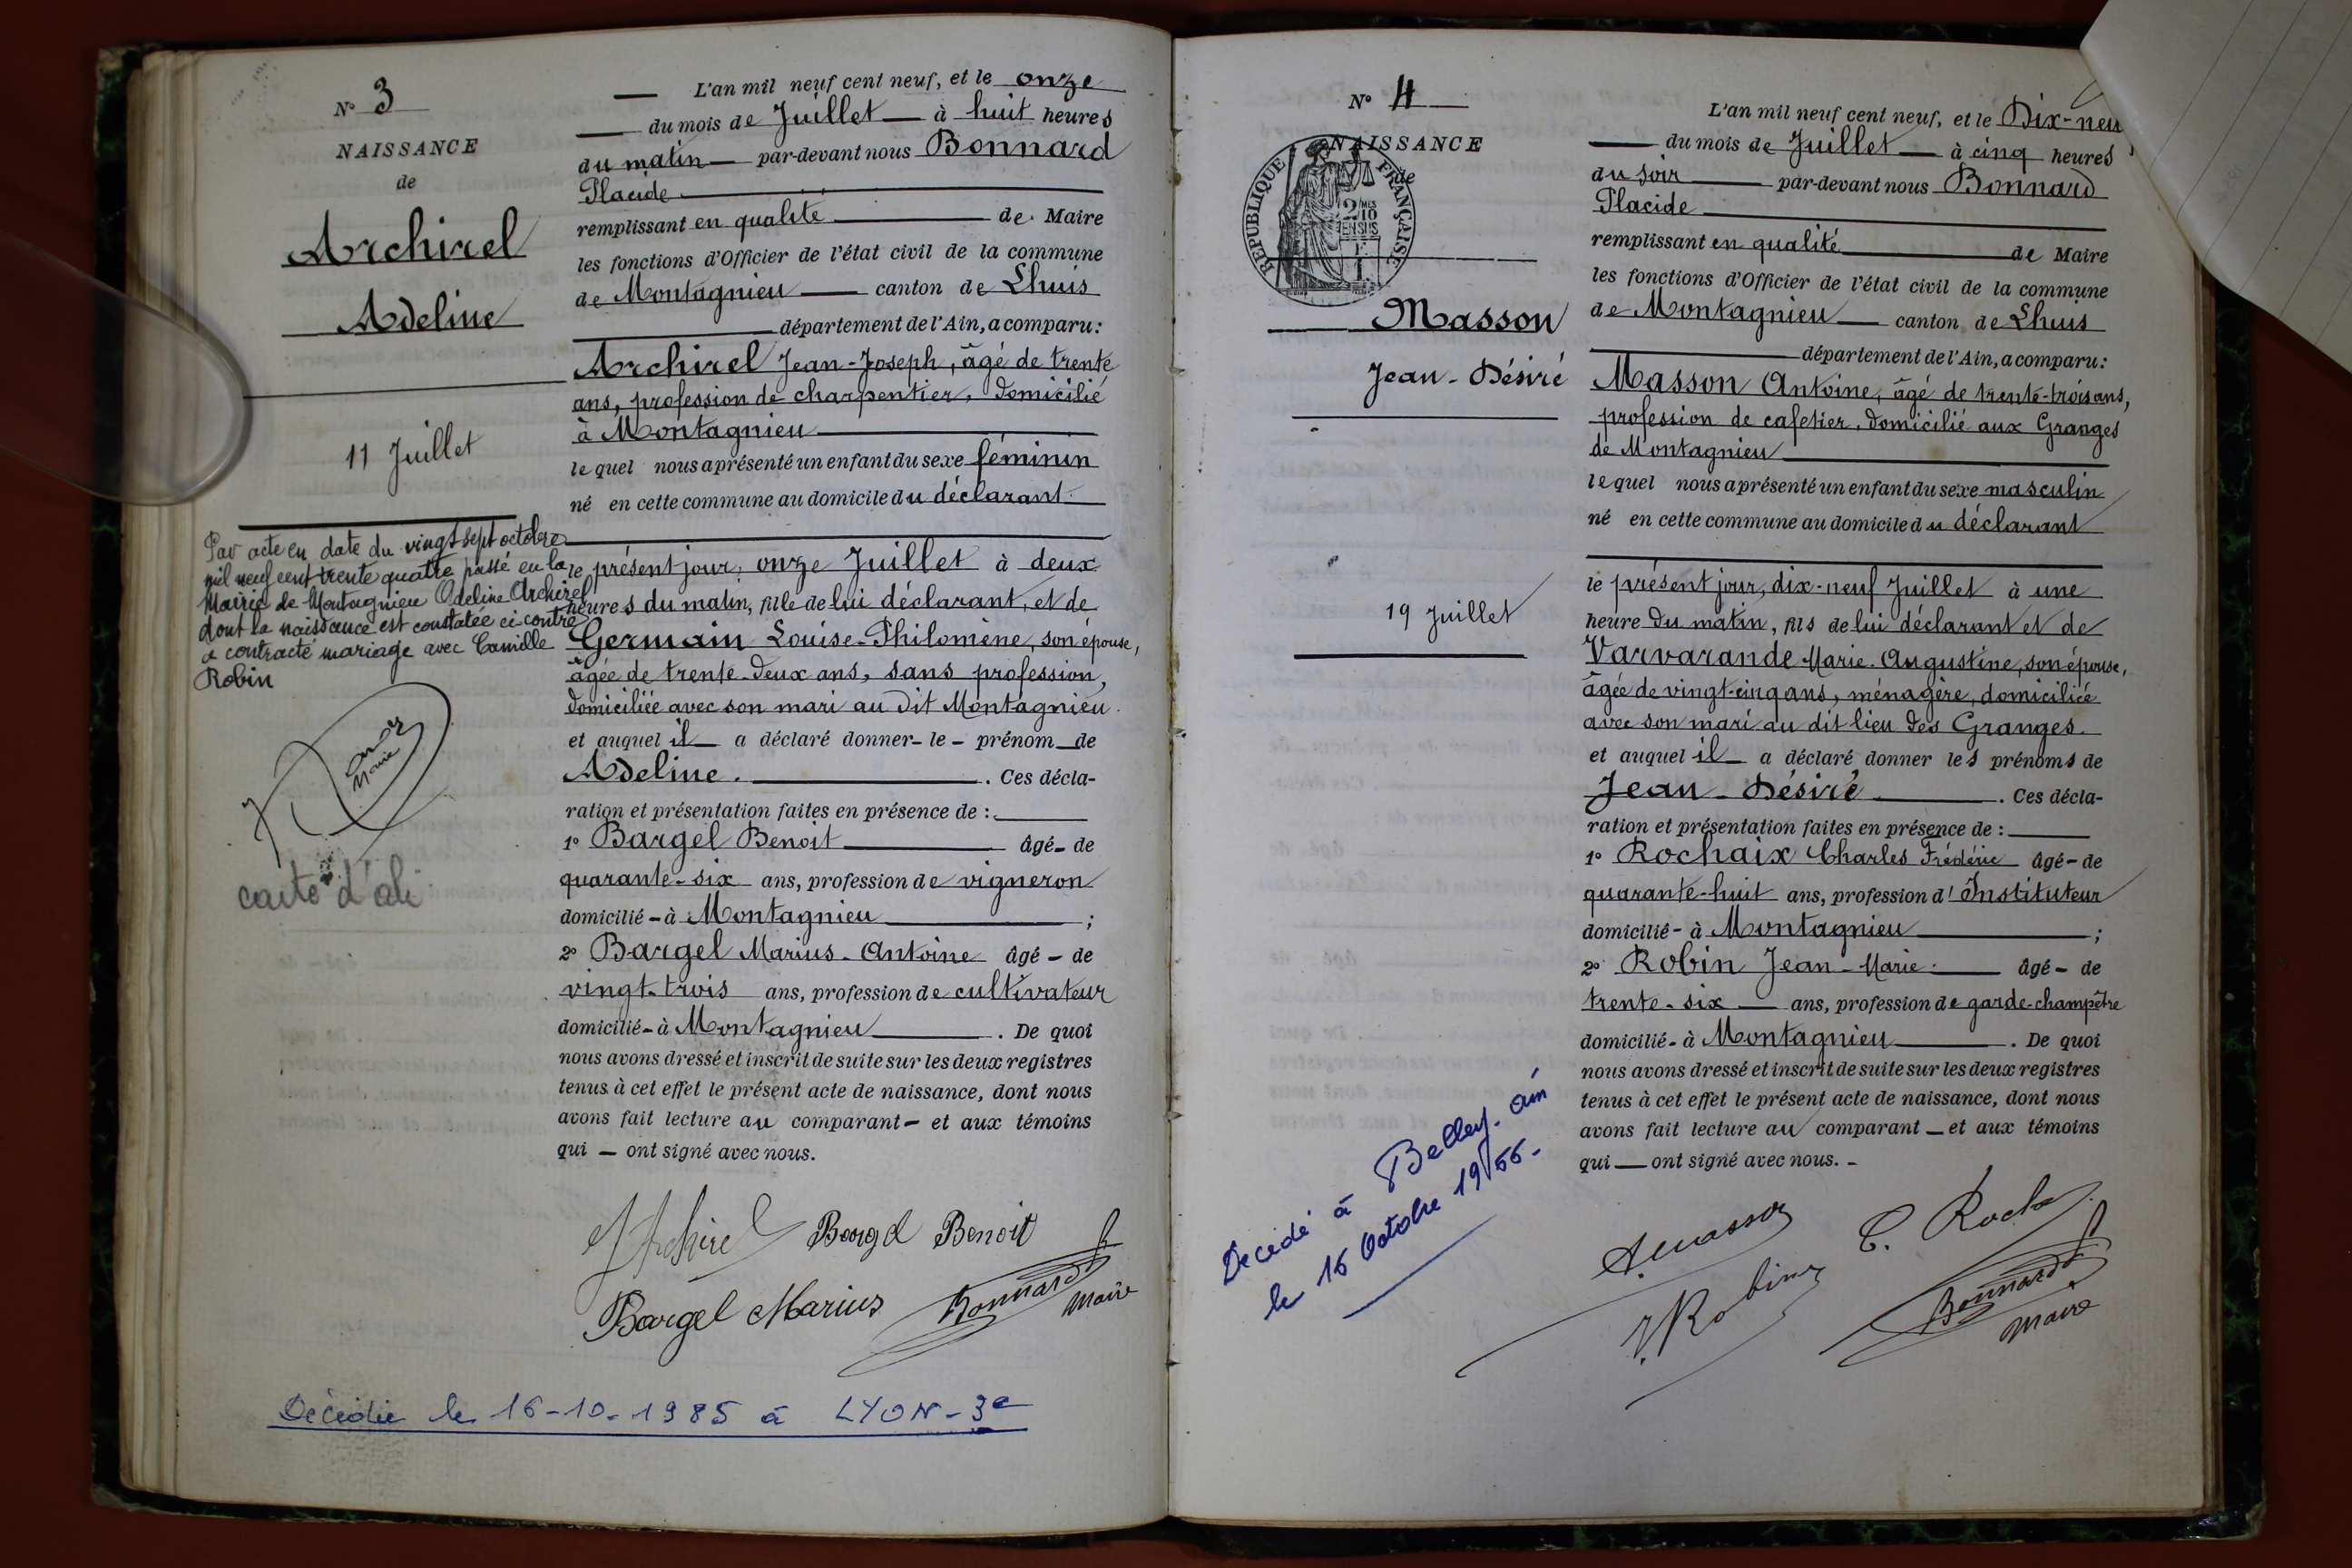 N° 3
NAISSANCE
de
Archirel
Adeline
11 Juillet
Par acte en date du vingt sept octobre
mil neuf cent trente quatre passé en la
Mairie de Montagnieu Adeline Archirel
dont la naissance est constatée ci contre
a contracté mariage avec Camille
Robin
Maire
carte d'ali
L'an mil neuf cent neuf, et le onze
du mois de Juillet à huit heures
du matin par-devant nous Bonnard
Placide
remplissant en qualité de Maire
les fonctions d'Officier de l'état civil de la commune
de Montagnieu canton de Lhuis
département de l'Ain, a comparu :
Archirel Jean-Joseph, âgé de trente
ans, profession de charpentier, domicilié
à Montagnieu
lequel nous a présenté un enfant du sexe féminin
né en cette commune au domicile du déclarant
le présent jour, onze Juillet à deux
heures du matin, fille de lui déclarant, et de
Germain Louise-Philomène, son épouse,
âgée de trente-deux ans, sans profession,
domiciliée avec son mari au dit Montagnieu.
et auquel il a déclaré donner le prénom de
Adeline. Ces décla-
ration et présentation faites en présence de :
1° Bargel Benoit âgé de
quarante-six ans, profession de vigneron
domicilié à Montagnieu ;
2° Bargel Marius-Antoine âgé de
vingt-trois ans, profession de cultivateur
domicilié à Montagnieu. De quoi
nous avons dressé et inscrit de suite sur les deux registres
tenus à cet effet le présent acte de naissance, dont nous
avons fait lecture au comparant et aux témoins
qui ont signé avec nous.
J Archirel Bargel Benoit
Bargel Marius Bonnard
Maire
Décédée le 16-10-1985 à LYON-3e
N° 4
NAISSANCE
de
REPUBLIQUE FRANÇAISE
2/10 MES
EN SUS
Masson
Jean-Désiré
19 Juillet
Décédé à Belley Ain
le 16 Octobre 1966-
L'an mil neuf cent neuf, et le Dix-neu
du mois de Juillet à cinq heures
du soir par-devant nous Bonnard
Placide
remplissant en qualité de Maire
les fonctions d'Officier de l'état civil de la commune
de Montagnieu canton de Lhuis
département de l'Ain, a comparu :
Masson Antoine, âgé de trente-trois ans,
profession de cafetier, domicilié aux Granges
de Montagnieu
lequel nous a présenté un enfant du sexe masculin
né en cette commune au domicile du déclarant
le présent jour, dix-neuf Juillet à une
heure du matin, fils de lui déclarant et de
Varvarande Marie-Augustine, son épouse,
âgée de vingt-cinq ans, ménagère, domiciliée
avec son mari au dit lieu des Granges.
et auquel il a déclaré donner les prénoms de
Jean-Désiré. Ces décla-
ration et présentation faites en présence de :
1° Rochaix Charles Frédéric âgé de
quarante-huit ans, profession d'Instituteur
domicilié à Montagnieu ;
2° Robin Jean-Marie âgé de
trente-six ans, profession de garde-champêtre
domicilié à Montagnieu. De quoi
nous avons dressé et inscrit de suite sur les deux registres
tenus à cet effet le présent acte de naissance, dont nous
avons fait lecture au comparant et aux témoins
qui ont signé avec nous.
A. Masson C. Rocha
J. Robin Bonnard
Maire